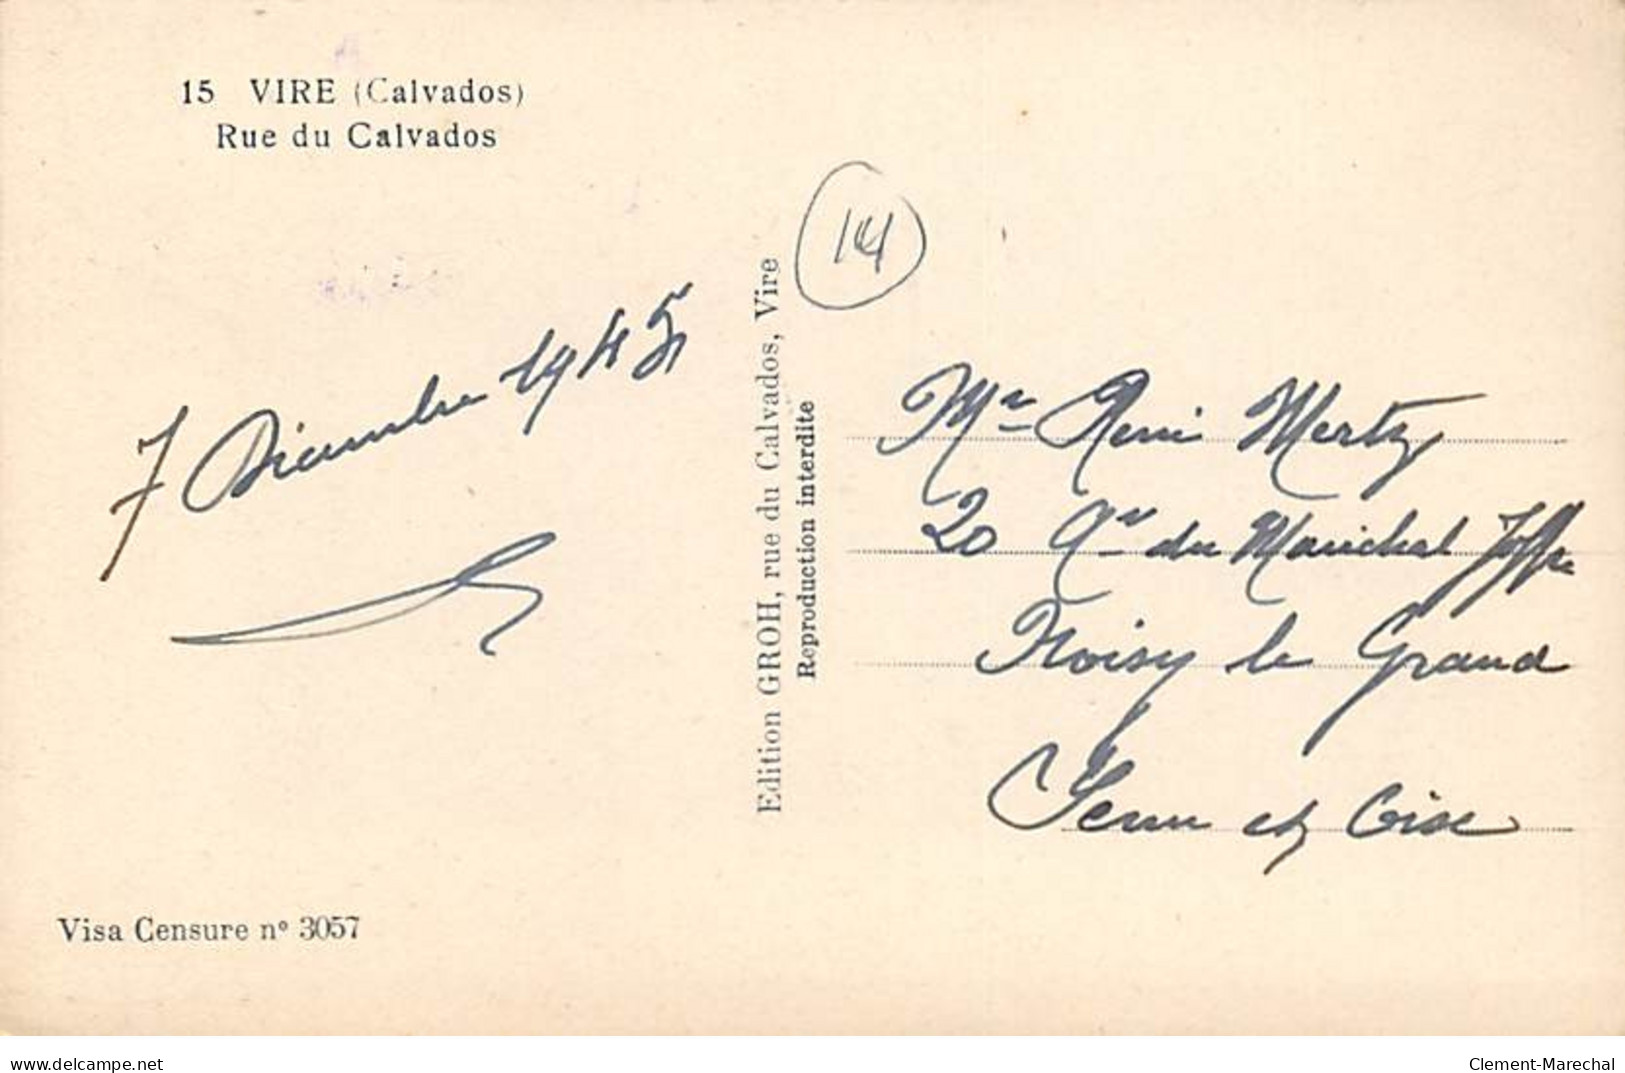 15 VIRE (Calvados)
Rue du Calvados
14
7 Décembre 1945
Edition GROH, rue du Calvados, Vire
Reproduction interdite
Mr René Mertz
20 Ar du Maréchal Joffre
Noisy le Grand
Seine et Oise
Visa Censure nº 3057
delcampe.net
Clement-Marechal